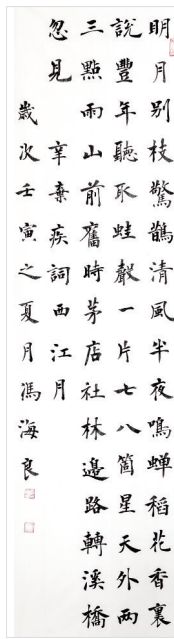 明月别枝驚鵲清風半夜鳴蝉稻花香裏
說豐年聽取蛙聲一片七八箇星天外兩
三點雨山前舊時茅店社林邊路轉溪橋
忽見 辛棄疾詞西江月
歲次壬寅之夏月馮海良